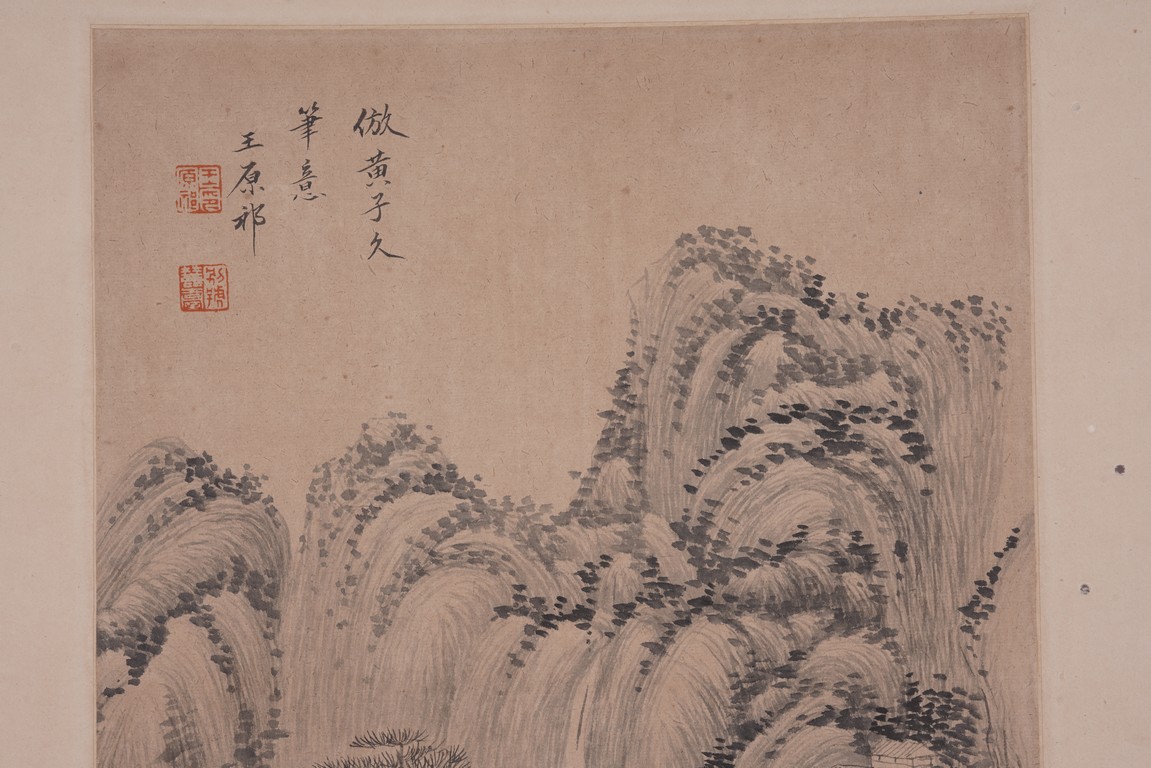 倣黃子久
筆意
王原祁
王原祁印